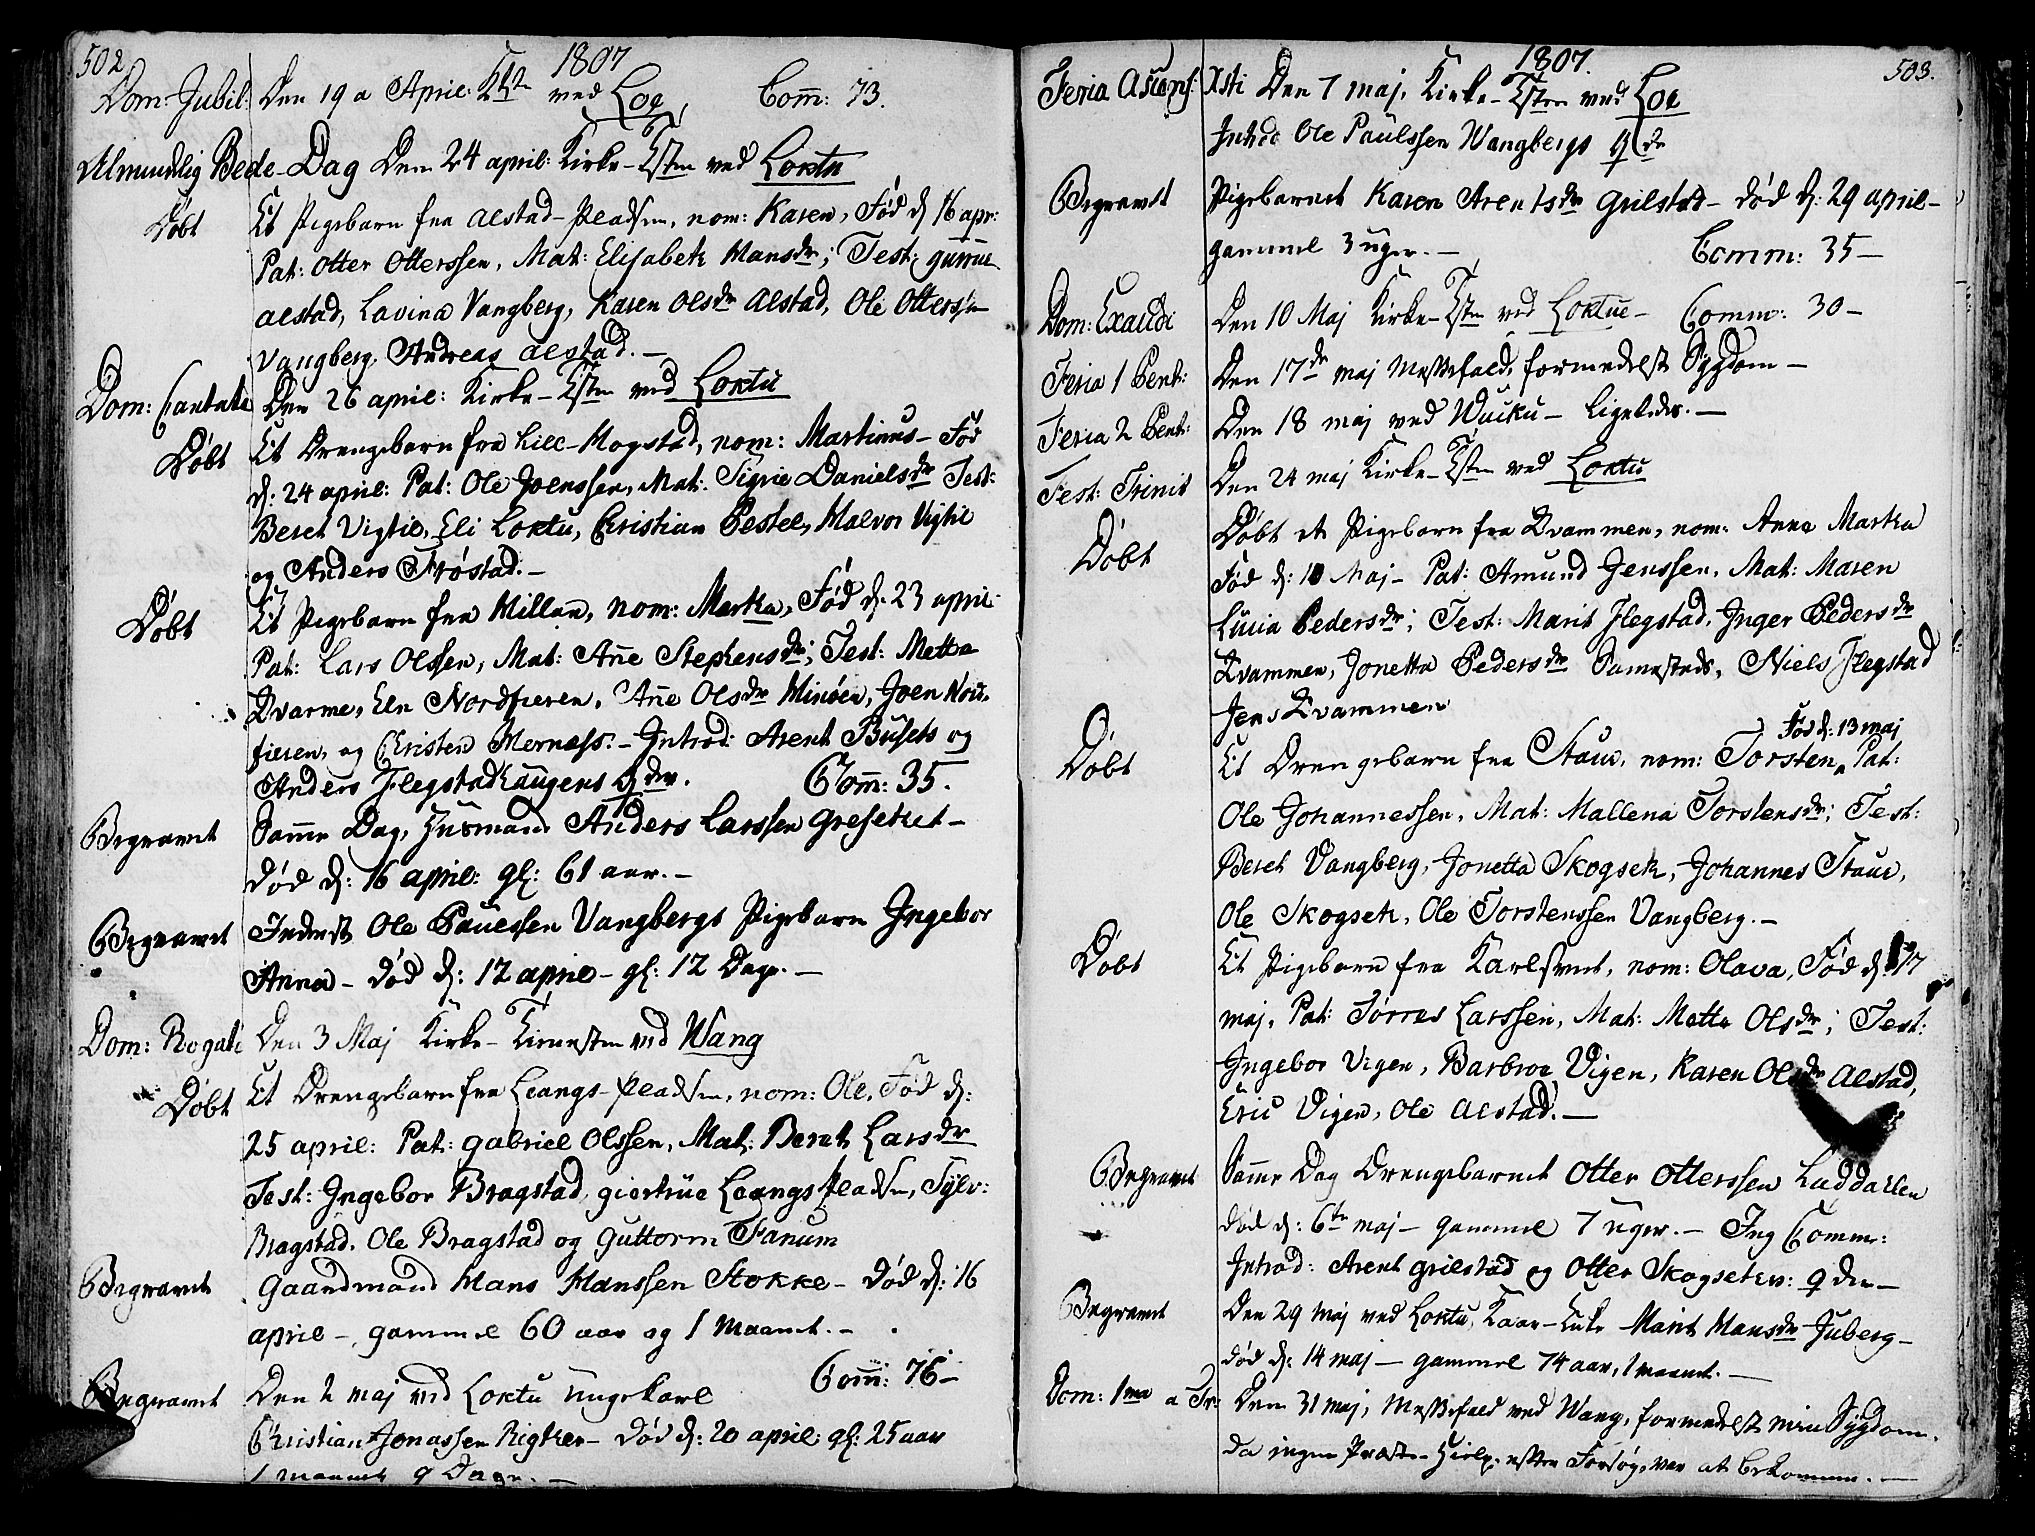 502
1807
Dom: Jubil: Den 19 a April: ved Loe, Com̄: 73.
Almindelig Bede-Dag Den 24 april: Kirke-Tsten ved Loktu
Døbt Et Pigebarn fra Alstad-Pladsen, nom: Karen, Fød d. 16 apr:
Pat: Otter Otterssen, Mat: Elisabeth Hansdr; Test: Gurrue
Alstad, Lavina Vangberg, Karen Olsdr Alstad, Ole Otterssen
Vangberg. Andreas Alstad.—
Dom: Cantate Den 26 april: Kirke-Tsten ved Loktu
Døbt Et Drengebarn fra Lill-Mogstad, nom: Martinus- Fød
d: 24 april: Pat: Ole Joenssen, Mat: Sigrie Danielsdr Test:
Beret Vigtil, Eli Loktu, Christian Pestel, Halvor Vigtil
og Anders Frøstad.—
Døbt Et Pigebarn fra Millan, nom: Martha, Fød d. 23 april-
Pat: Lars Olssen, Mat: Ane Stephensdr; Test: Metta
Qvarme, Eln Nordfieren, Ane Olsdr Minøen, Joen Nord-
fieren, og Christen Mernæss.- Introd: Arent Busets og
Anders Flegstadhaugens qder. Com̄: 35.
Begravet Samme Dag, Husmand Anders Larssen Gresetret-
død d: 16 april: gl: 61 aar.-
Begravet Inderst Ole Paulssen Vangbergs Pigebarn Ingebor
Anna- død d: 12 april- gl: 12 Dage.—
Dom: Rogate Den 3 Maj Kirke-Tienesten ved Wang
Døbt Et Drengebarn fra Leangs-Pladsen, nom: Ole, Fød d:
25 april: Pat: Gabriel Olssen, Mat: Beret Larsdr
Test: Ingebor Bragstad, Giertrue Leangspladsen, Sylv:
Bragstad. Ole Bragstad og Guttorm Fanum
Begravet Gaardmand Hans Hanssen Stokke- død d: 16
april- gammel 60 aar og 1 Maaned.-
Com̄: 76-
Begravet Den 2 maj ved Loktu ungekarl
Christian Jonassen Rigtker- død d: 20 april: gl: 25 aar
1 maaned 9 Dage.—
1807.
503.
Feria Ascens: Xsti Den 7 maj, Kirke-Tsten ved Loe
Introd Ole Paulssen Wangbergs qde
Begravet Pigebarnet Karen Arentsdr Grilstad- død d: 29 april-
gammel 3 uger.— Comm: 35—
Dom: Exaudi Den 10 Maj Kirke-Tsten ved Loktue- Comm: 30-
Feria 1 Pent: Den 17de maj Messefald, formedelst Sygdom—
Feria 2 Pent: Den 18 maj ved Wuku- ligeledes.—
Fest: Trinit Den 24 maj Kirke-Tsten ved Loktu
Døbt Døbt et Pigebarn fra Qvammen, nom: Anne Martha
Fød d: 10 Maj- Pat: Amund Jenssen, Mat: Maren
Lucia Pedersdr; Test: Marit Flegstad, Inger Pedersdr
Qvammen, Jonetta Pedersdr Sammesteds, Niels Flegstad
Jens Qvammen
Fød d: 13 maj
Døbt Et Drengebarn fra Staue, nom: Torsten, Pat:
Ole Johannessen, Mat: Mallena Torstensdr; Test:
Beret Vangberg, Jonetta Skogsek, Johannes Staue,
Ole Skogsek, Ole Torstenssen Vangberg.—
Døbt Et Pigebarn fra Karlsvet, nom: Olava, Fød d: 17
maj, Pat: Tørres Larssen, Mat: Mette Olsdr; Test:
Ingebor Vigen, Barbroe Vigen, Karen Olsdr Alstad,
Eric Vigen, Ole Alstad.—
Begravet Samme Dag Drengebarnet Otter Otterssen Luddallen
død d: 6te maj- gammel 7 uger.- Ing Comm:
Introd: Arent Grilstad og Otter Skogseths: qder—
Begravet Den 29 maj ved Loktu, Kaar-Enke Marit Hansdr Juberg-
død d: 14 maj- gammel 74 aar, 1 maaned.—
Dom: 1ma a Tr: Den 31 maj, Messefald ved Wang, formedelst min Sygdom,
da ingen Præste-Hielp, efter Forsøg, var at bekomme.—